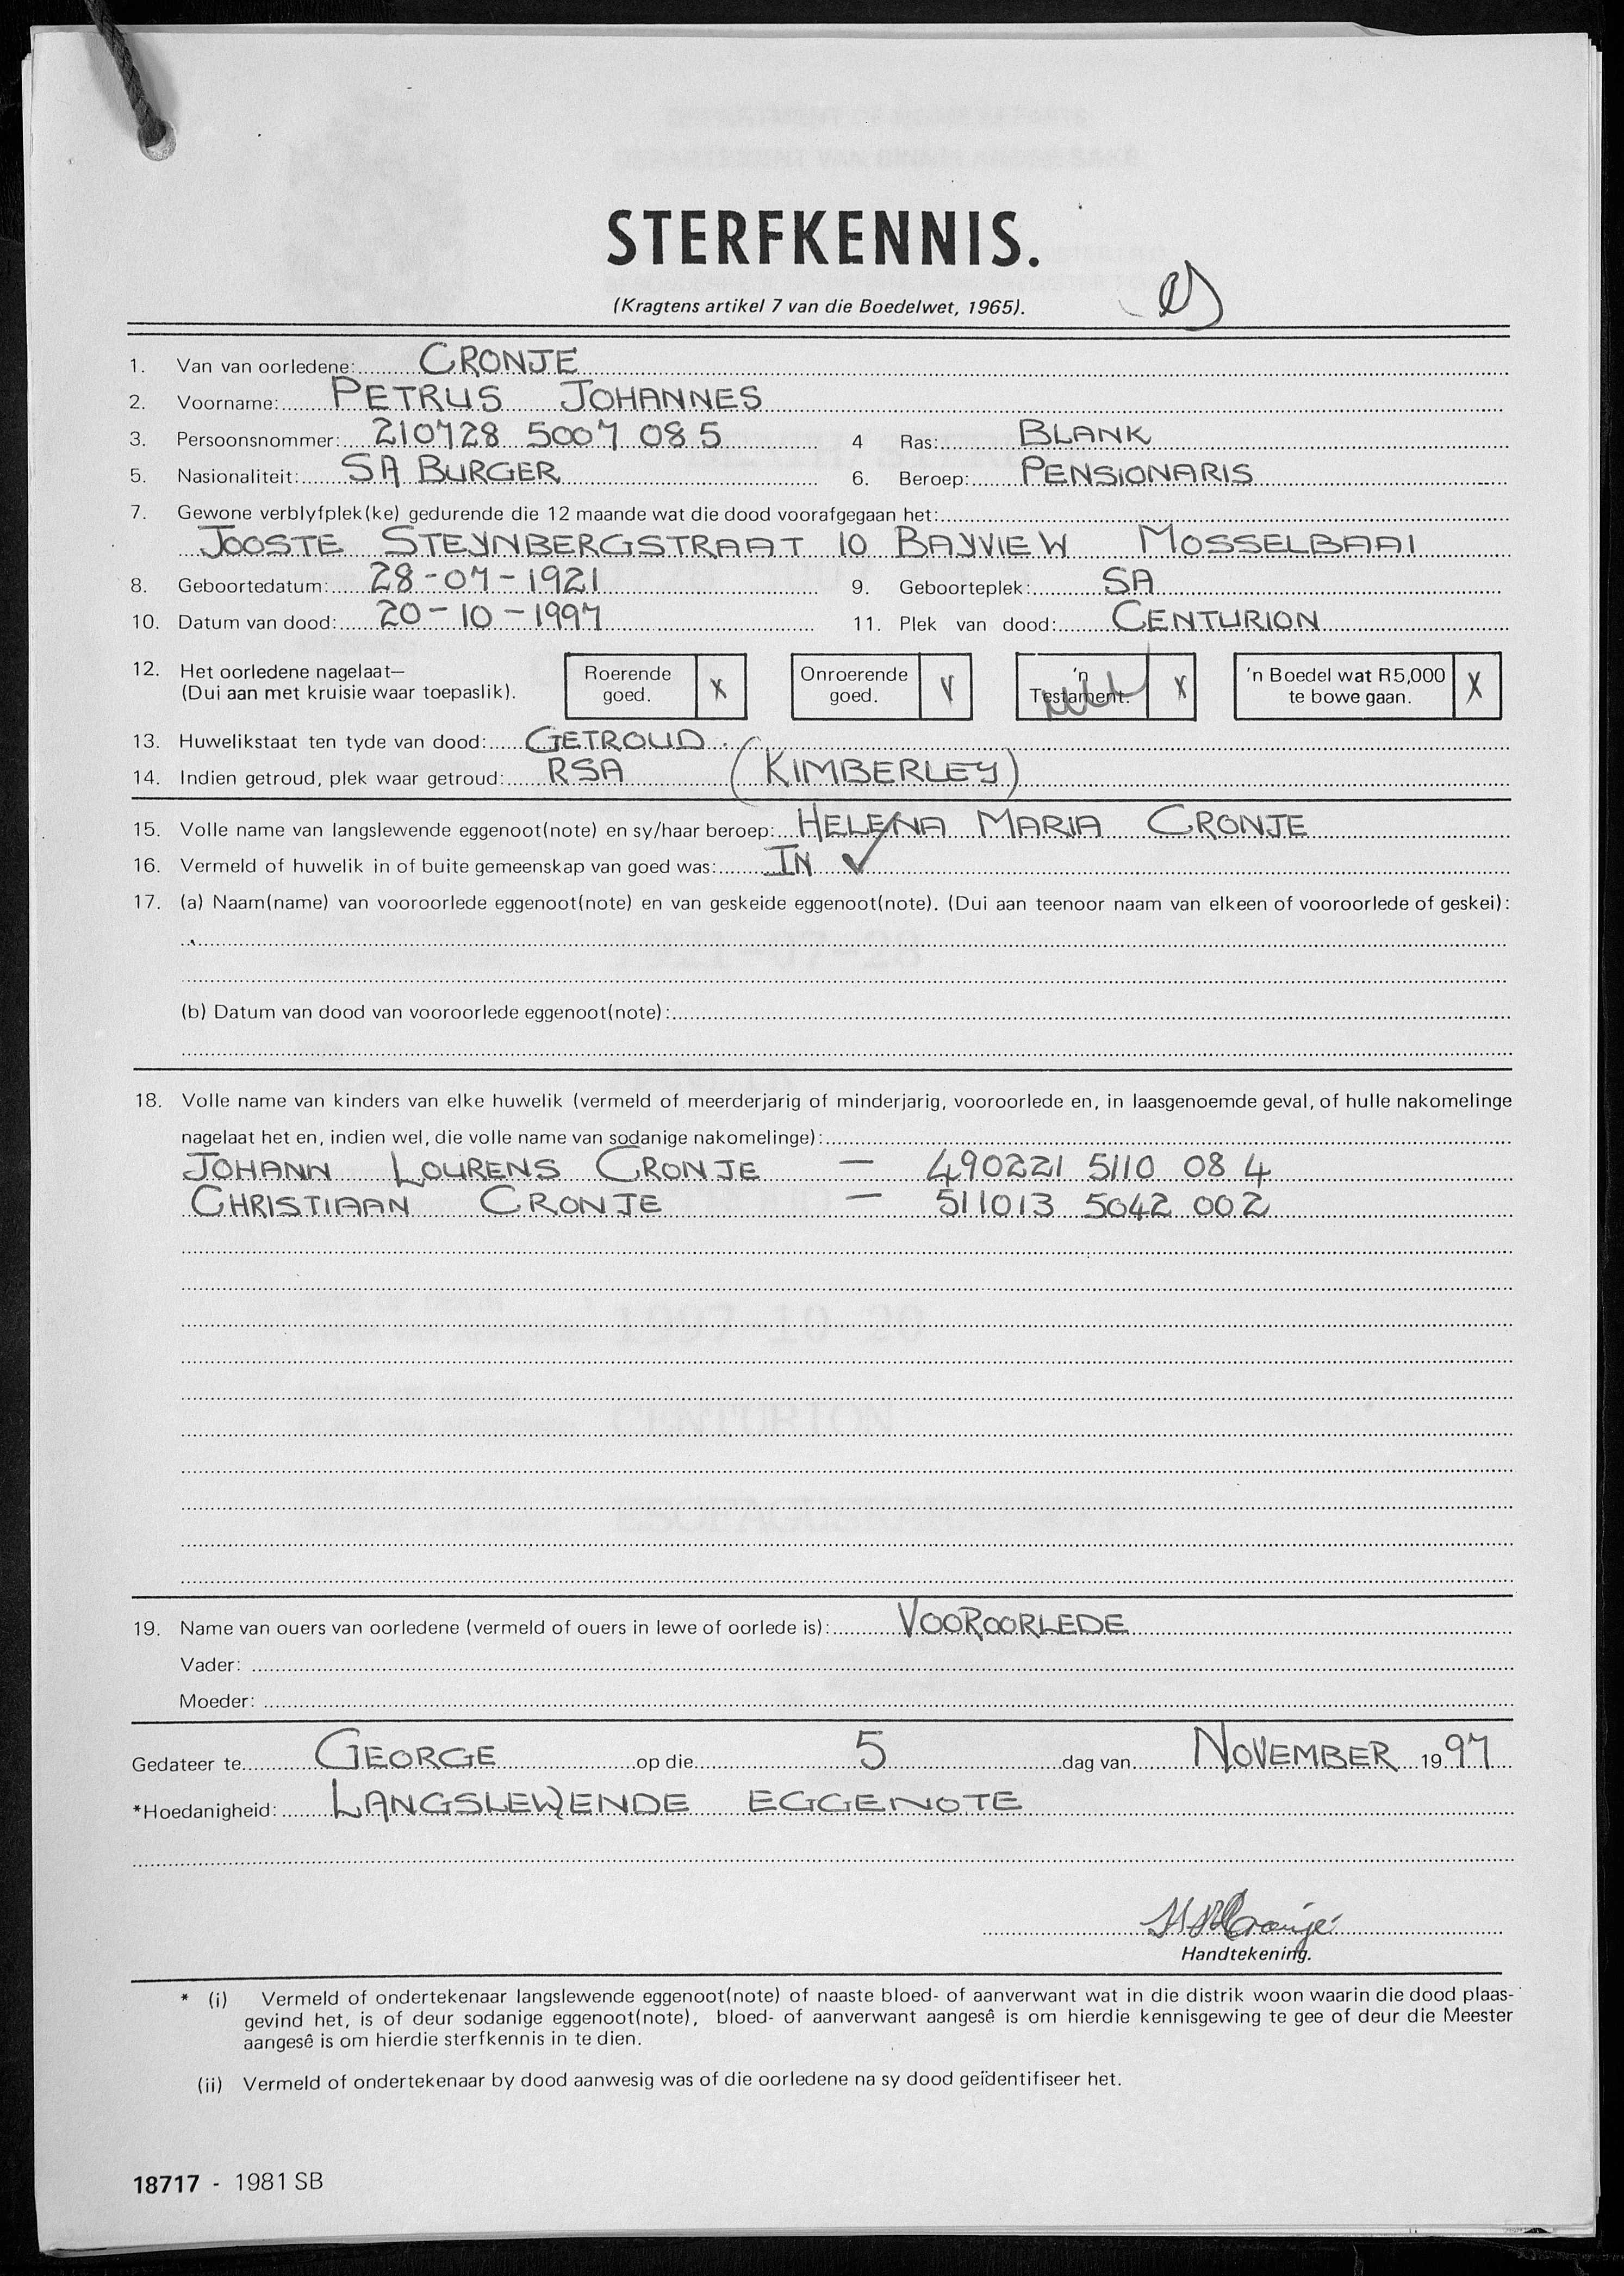 STERFKENNIS.
(Kragtens artikel 7 van die Boedelwet, 1965).
1. Van van oorledene: CRONJE
2. Voorname: PETRUS JOHANNES
3. Persoonsnommer: 210728 5007 08 5 4 Ras: BLANK
5. Nasionaliteit: SA BURGER 6. Beroep: PENSIONARIS
7. Gewone verblyfplek(ke) gedurende die 12 maande wat die dood voorafgegaan het:
JOOSTE STEYNBERGSTRAAT 10 BAYVIEW MOSSELBAAI
8. Geboortedatum: 28-07-1921 9. Geboorteplek: SA
10. Datum van dood: 20-10-1997 11. Plek van dood: CENTURION
12. Het oorledene nagelaat— Roerende goed. X Onroerende goed. V 'n Testament. X 'n Boedel wat R5,000 te bowe gaan. X
(Dui aan met kruisie waar toepaslik).
13. Huwelikstaat ten tyde van dood: GETROUD.
14. Indien getroud, plek waar getroud: RSA (KIMBERLEY)
15. Volle name van langslewende eggenoot(note) en sy/haar beroep: HELENA MARIA CRONJE
16. Vermeld of huwelik in of buite gemeenskap van goed was: IN ✓
17. (a) Naam(name) van vooroorlede eggenoot(note) en van geskeide eggenoot(note). (Dui aan teenoor naam van elkeen of vooroorlede of geskei):
(b) Datum van dood van vooroorlede eggenoot(note):
18. Volle name van kinders van elke huwelik (vermeld of meerderjarig of minderjarig, vooroorlede en, in laasgenoemde geval, of hulle nakomelinge
nagelaat het en, indien wel, die volle name van sodanige nakomelinge):
JOHANN LOURENS CRONJE — 490221 5110 08 4
CHRISTIAAN CRONJE — 511013 5042 002
19. Name van ouers van oorledene (vermeld of ouers in lewe of oorlede is): VOOROORLEDE
Vader:
Moeder:
Gedateer te GEORGE op die 5 dag van NOVEMBER 1997
*Hoedanigheid: LANGSLEWENDE EGGENOTE
H M Cronje
Handtekening.
* (i) Vermeld of ondertekenaar langslewende eggenoot(note) of naaste bloed- of aanverwant wat in die distrik woon waarin die dood plaas-
gevind het, is of deur sodanige eggenoot(note), bloed- of aanverwant aangesê is om hierdie kennisgewing te gee of deur die Meester
aangesê is om hierdie sterfkennis in te dien.
(ii) Vermeld of ondertekenaar by dood aanwesig was of die oorledene na sy dood geïdentifiseer het.
18717 - 1981 SB